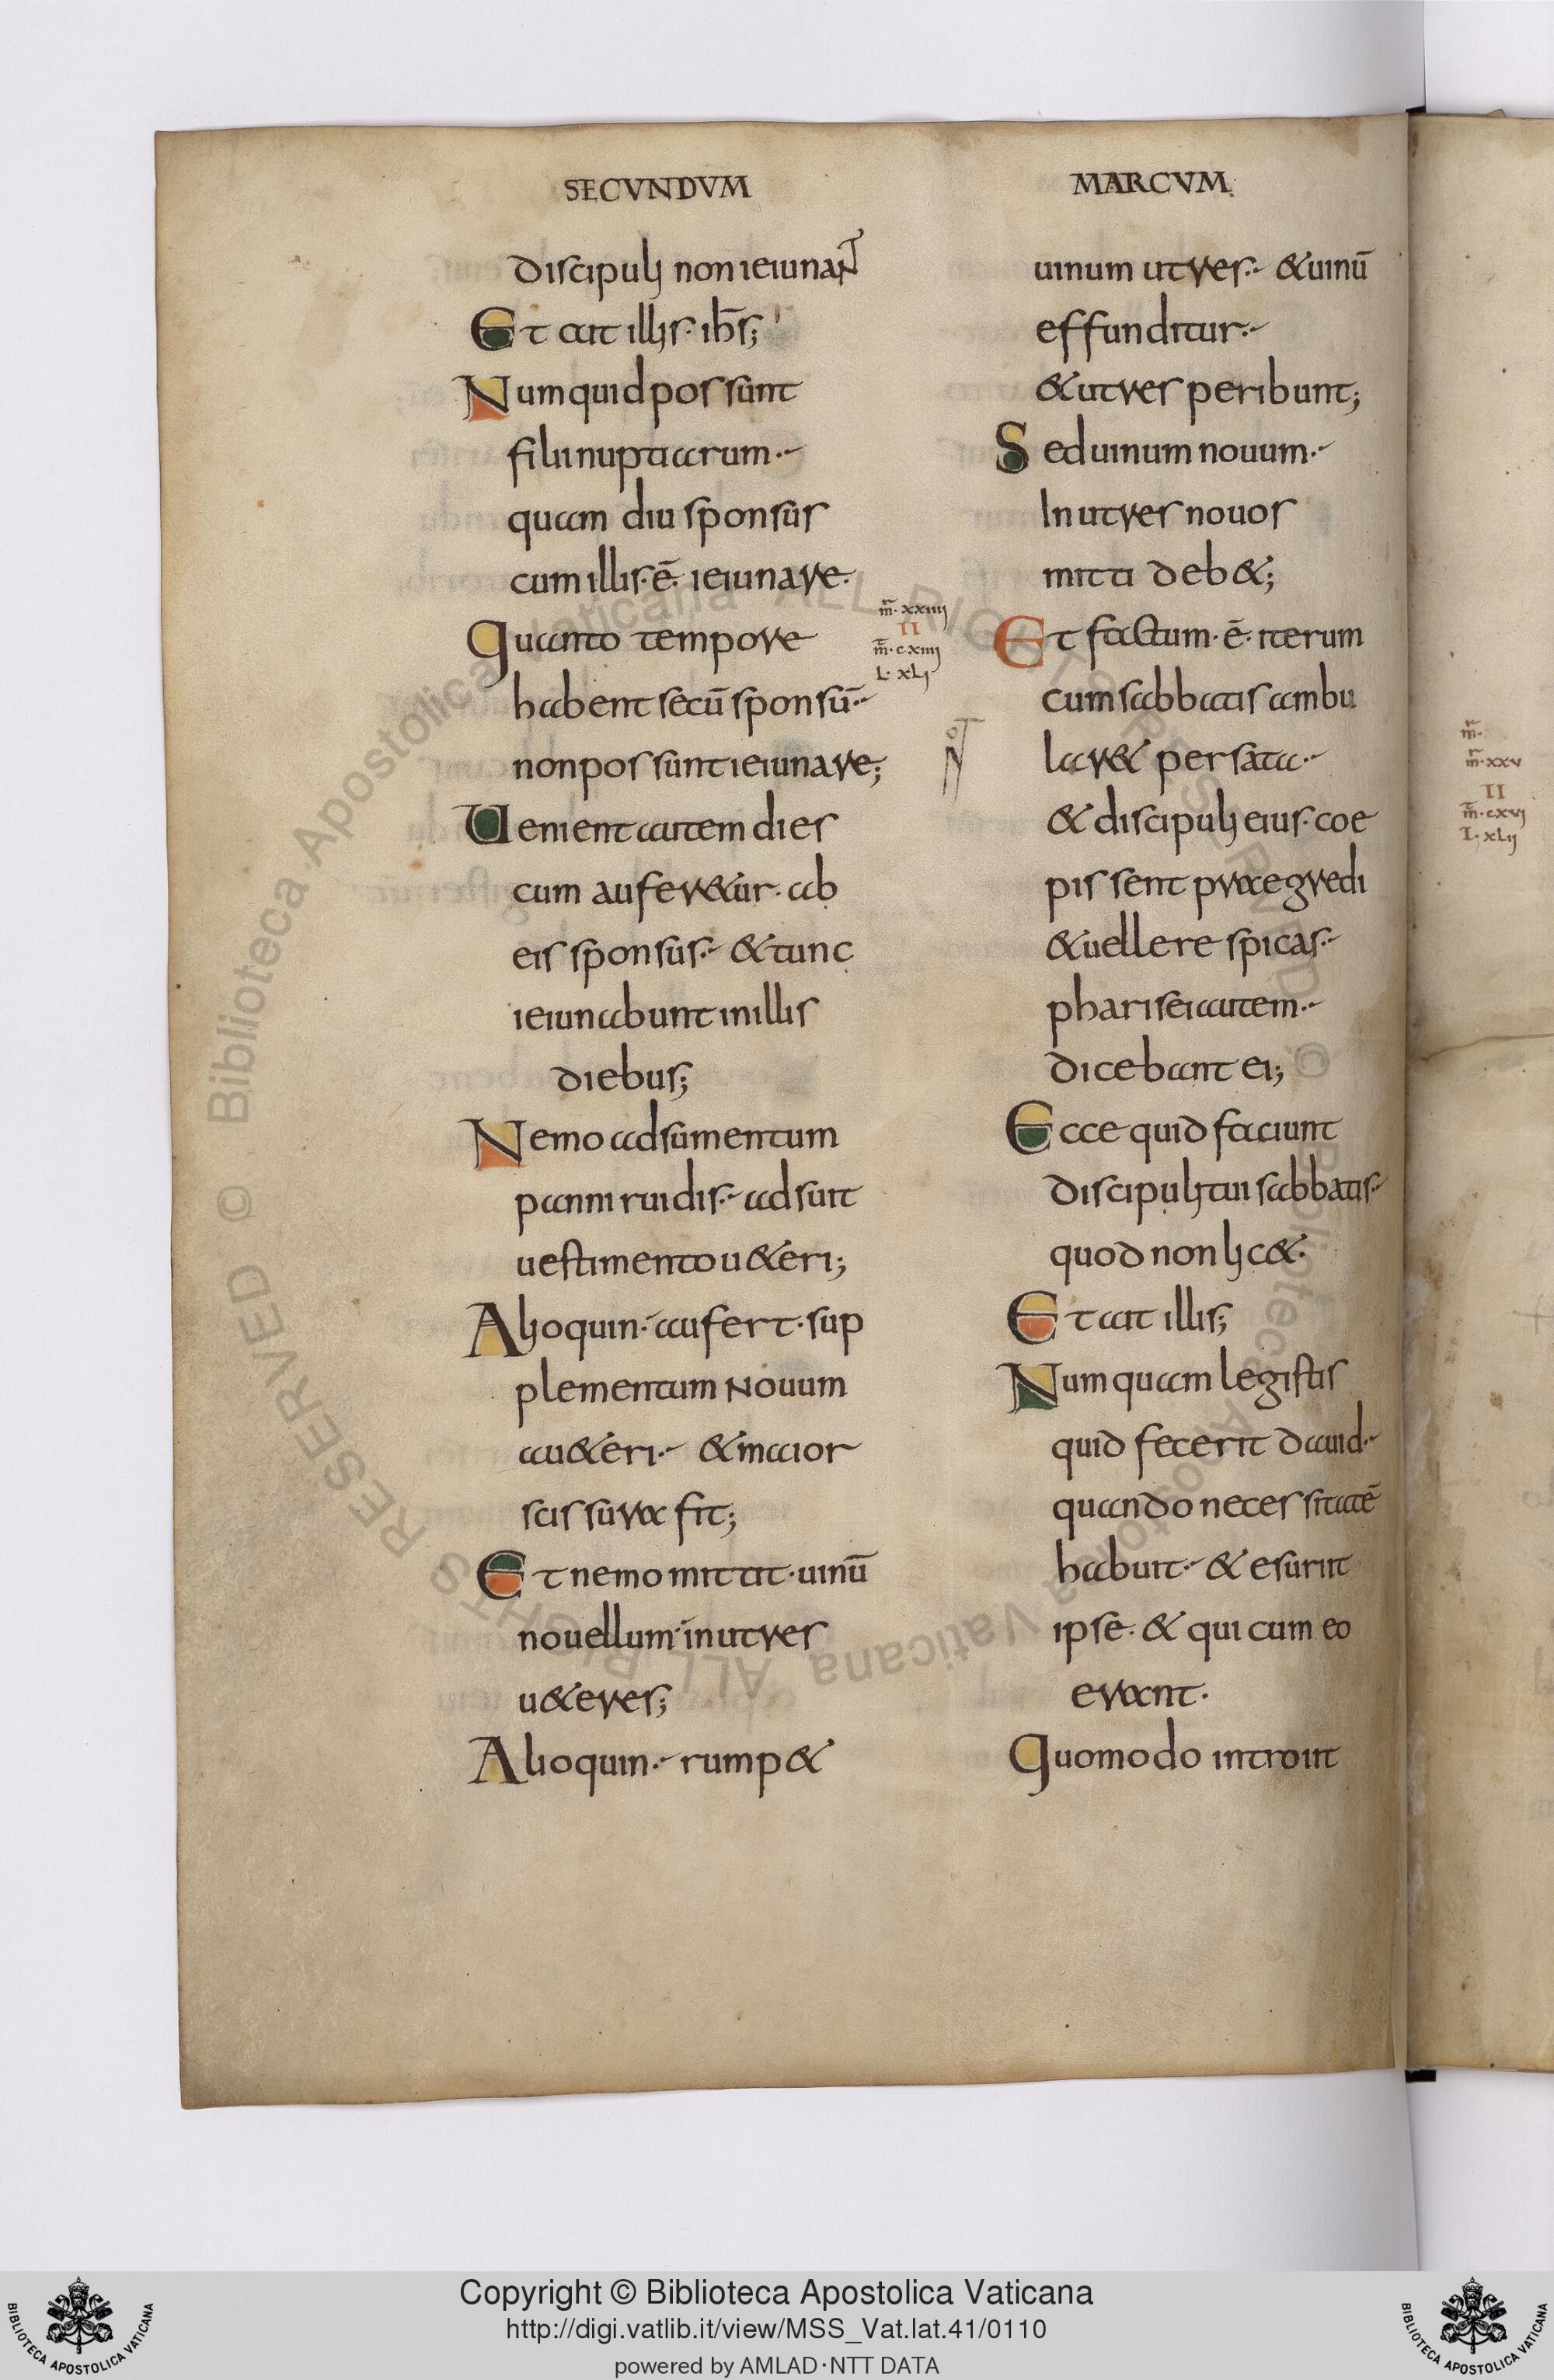 SECVNDVM
discipuli non ieiunaNT
Et ait illis· ihs̄;
Numquid possunt
filii nuptiarum·-
quam diu sponsus
cum illis·ē· ieiunare·
Quanto tempore
habent secū sponsū·-
non possunt ieiunare;
Uenient autem dies
cum auferetur· ab
eis sponsus·- & tunc
ieiunabunt in illis
diebus;
Nemo adsumentum
panni ruidis·- adsuit
uestimento u&eri;
Alioquin· aufert· sup
plementum Nouum
a u&eri·- & maior
scissura fit;
Et nemo mittit· uinū
nouellum in utres
u&eres;
Alioquin·- rump&
MARCVM
uinum utres·- & uinū
effunditur·-
& utres peribunt;
Sed uinum nouum·-
In utres nouos
mitti deb&;
m̄· xxiiii
II
m̄· cxiiii
L· xLi
Et factum·ē· iterum
cum sabbatis ambu
lar& per sata·-
& discipuli eius· coe
pissent praegredi
& uellere spicas·-
pharisei autem·-
dicebant ei;
Ecce quid faciunt
discipuli tui sabbatis·-
quod non lic&·
Et ait illis;
Numquam legistis
quid fecerit dauid·-
quando necessitatē
habuit·- & esuriit
ipse· & qui cum eo
erant·
Quomodo introiit
m̄·
m̄· xxv
II
m̄· cxvi
L· xLii
© Biblioteca Apostolica Vaticana ALL RIGHTS RESERVED © Biblioteca Apostolica Vaticana ALL RIGHTS RESERVED
Copyright © Biblioteca Apostolica Vaticana
http://digi.vatlib.it/view/MSS_Vat.lat.41/0110
powered by AMLAD·NTT DATA
BIBLIOTECA APOSTOLICA VATICANA
BIBLIOTECA APOSTOLICA VATICANA